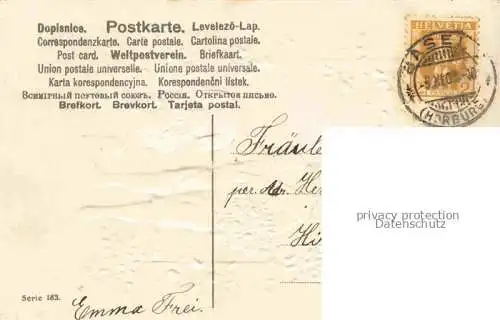 Dopisnice. Postkarte. Levelező-Lap.
Correspondenzkarte. Carte postale. Cartolina postale.
Post card. Weltpostverein. Briefkaart.
Union postale universelle. Unione postale universale.
Karta korespondencyjna. Korespondenční lístek.
Всемірный почтовый союзъ. Россія. Открытое письмо.
Brefkort. Brevkort. Tarjeta postal.
HELVETIA
BASEL
(HORBURG)
Fräule
per Adr. Her
privacy protection
Datenschutz
Serie 183.
Emma Frei.